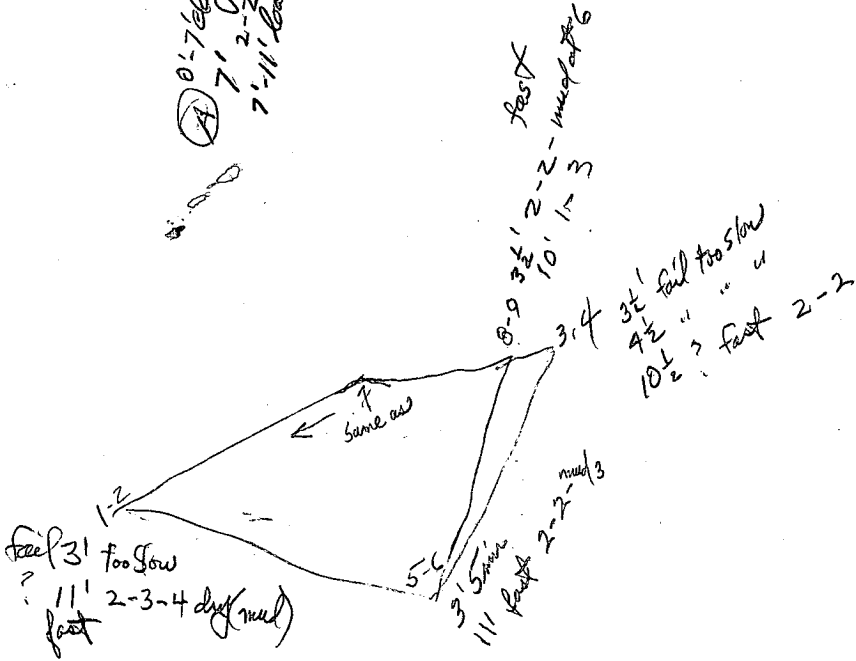 (A) 0'-7'
7' 2-
7'-11'
8-9 3½' 2-2- mud at 6
fast
10' 1-3
3,4 3½' fail too slow
4½ " " "
10½ ? fast 2-2
7
same as
1-2
fail 3' too slow
? 11' 2-3-4 dry (mud)
fast
5-6
3' 5 min
11' fast 2-2-mud 3